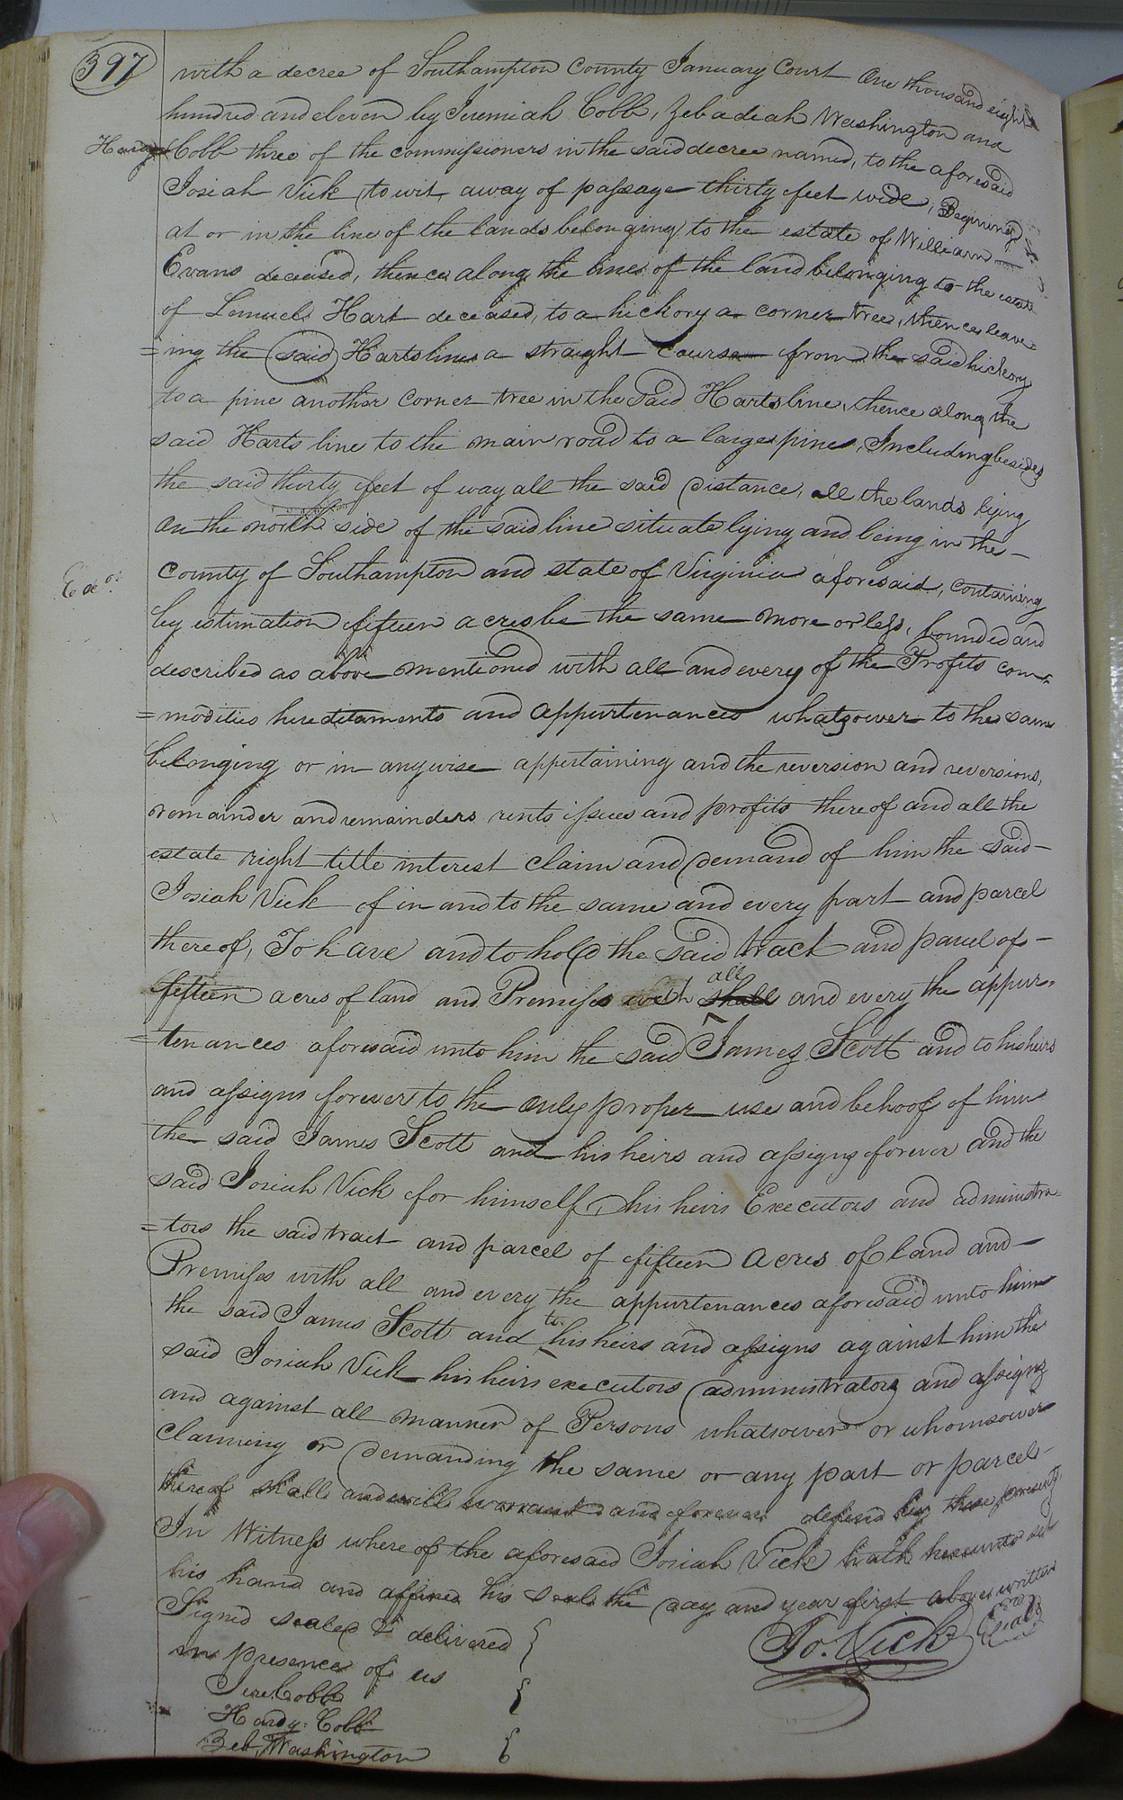 397
with a decree of Southampton County January Court One thousand eight
hundred and eleven by Jeremiah Cobb, Zebadeah Washington and
Hardy Cobb three of the commissioners in the said decree named, to the aforesaid
Josiah Vick, to wit, away of passage thirty feet wide, Beginning
at or in the line of the lands belonging to the estate of William
Evans deceased, thence along the lines of the land belonging to the estate
of Lemuel Hart deceased, to a hickory a corner tree, thence leave=
=ing the said Harts lines a straight course from the said hickory
to a pine another corner tree in the said Harts line, thence along the
said Harts line to the main road to a large pine, Including besides
the said thirty feet of way all the said distance, all the lands lying
on the north side of the said line situate lying and being in the
Exd.
County of Southampton and state of Virginia aforesaid, containing
by estimation fifteen acres be the same more or less, bounded and
described as above mentioned with all and every of the Profits com=
=modities hereditaments and appurtenances whatsoever to the same
belonging or in anywise appertaining and the reversion and reversions,
remainder and remainders rents issues and profits thereof and all the
estate right title interest claim and demand of him the said
Josiah Vick of in and to the same and every part and parcel
thereof, To have and to hold the said tract and parcel of
fifteen acres of land and Premises with shall all and every the appur=
=tenances aforesaid unto him the said James Scott and to his heirs
and assigns forever to the only proper use and behoof of him
the said James Scott and his heirs and assigns forever and the
said Josiah Vick for himself, his heirs Executors and administra=
=tors the said tract and parcel of fifteen acres of land and
Premises with all and every the appurtenances aforesaid unto him
the said James Scott and to his heirs and assigns against him the
said Josiah Vick his heirs executors administrators and assigns
and against all manner of Persons whatsoever or whomsoever
claiming or demanding the same or any part or parcel
thereof shall and will warrant and forever defend by these presents
In Witness where of the aforesaid Josiah Vick hath hereunto set
his hand and affixed his seal the day and year first above written
Signed sealed & delivered
in presence of us
Jo. Vick Seal
Jere. Cobb
Hardy Cobb
Zeb. Washington